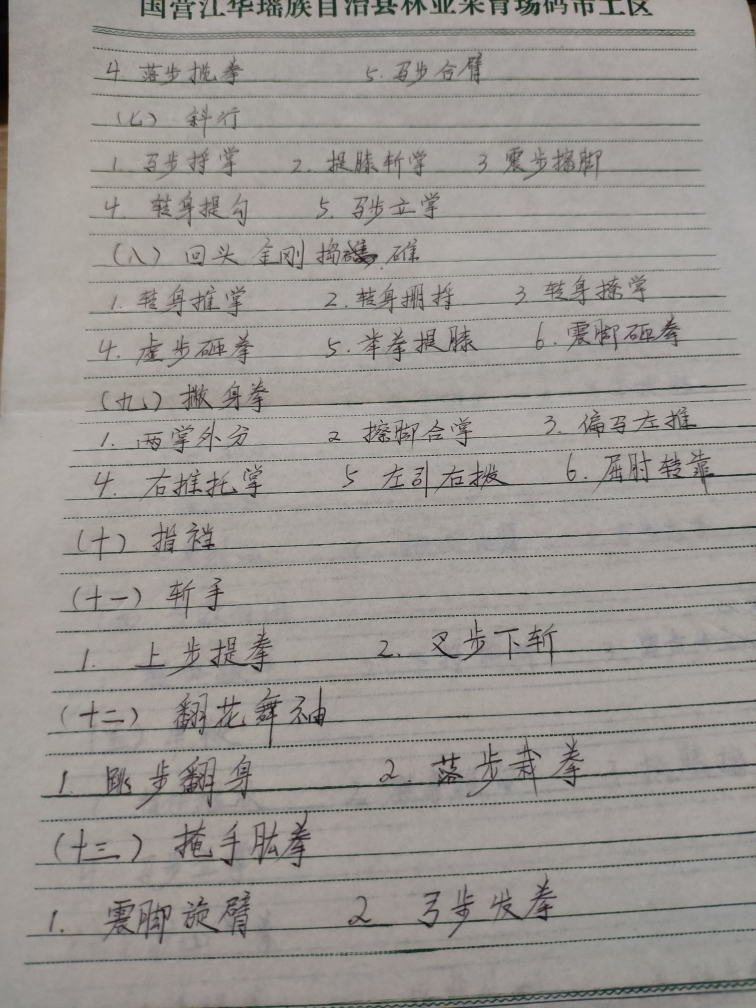 国营江华瑶族自治县林业采育场码市工区
4. 落步揽拳 5. 马步合臂
(七) 斜行
1. 马步捋掌 2. 提膝斩掌 3 震步擦脚
4. 转身提勾 5. 马步立掌
(八) 回头金刚捣碓
1. 转身推掌 2. 转身掤捋 3 转身撩掌
4. 虚步砸拳 5. 举拳提膝 6. 震脚砸拳
(九) 撇身拳
1. 两掌外分 2 擦脚合掌 3. 偏马左推
4. 右推托掌 5 左引右拨 6. 屈肘转靠
(十) 指裆
(十一) 斩手
1. 上步提拳 2. 叉步下斩
(十二) 翻花舞袖
1. 跳步翻身 2. 落步栽拳
(十三) 掩手肱拳
1. 震脚旋臂 2 弓步发拳